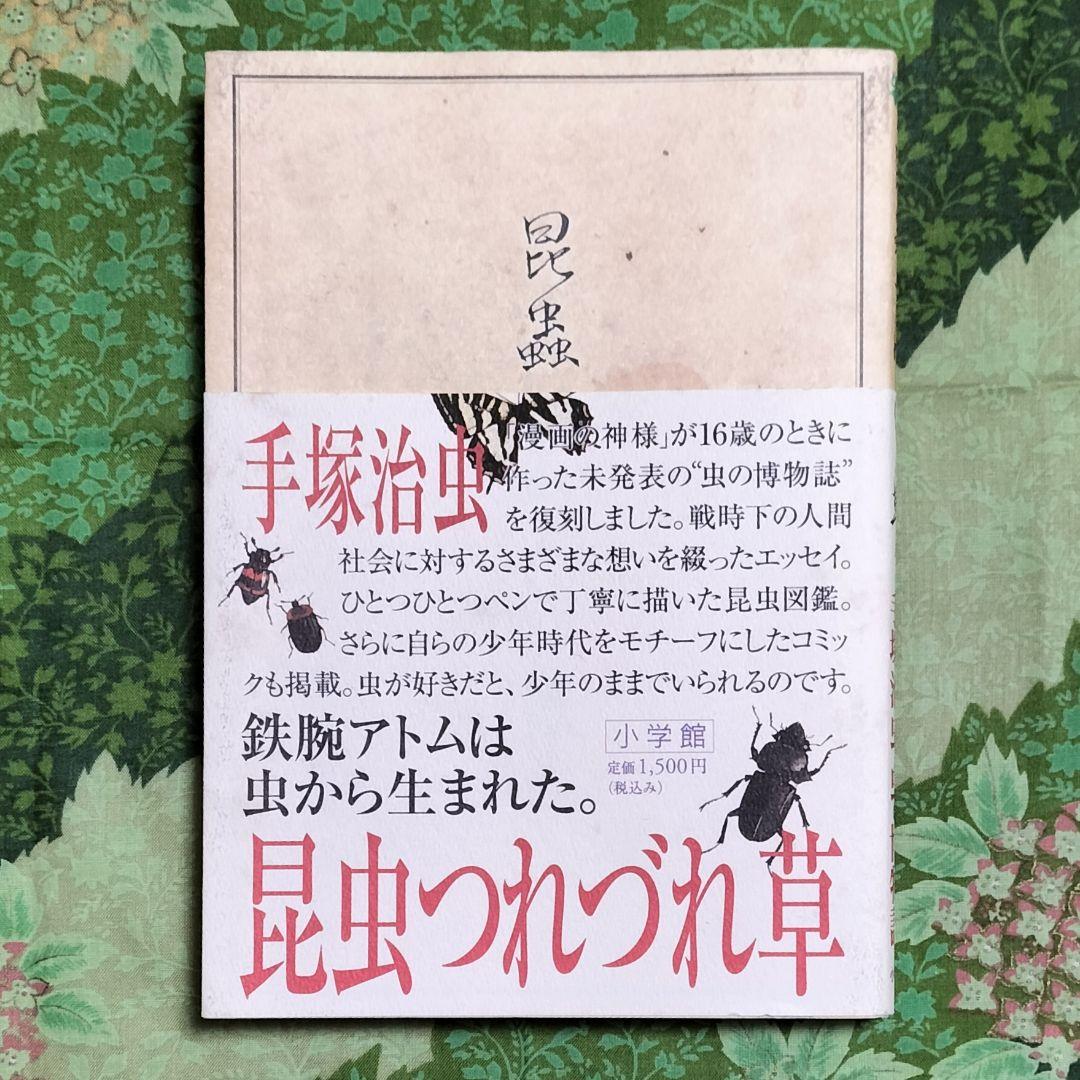 昆
蟲
手塚治虫
「漫画の神様」が16歳のときに
作った未発表の“虫の博物誌”
を復刻しました。戦時下の人間
社会に対するさまざまな想いを綴ったエッセイ。
ひとつひとつペンで丁寧に描いた昆虫図鑑。
さらに自らの少年時代をモチーフにしたコミッ
クも掲載。虫が好きだと、少年のままでいられるのです。
鉄腕アトムは
虫から生まれた。
小学館
定価1,500円
（税込み）
昆虫つれづれ草